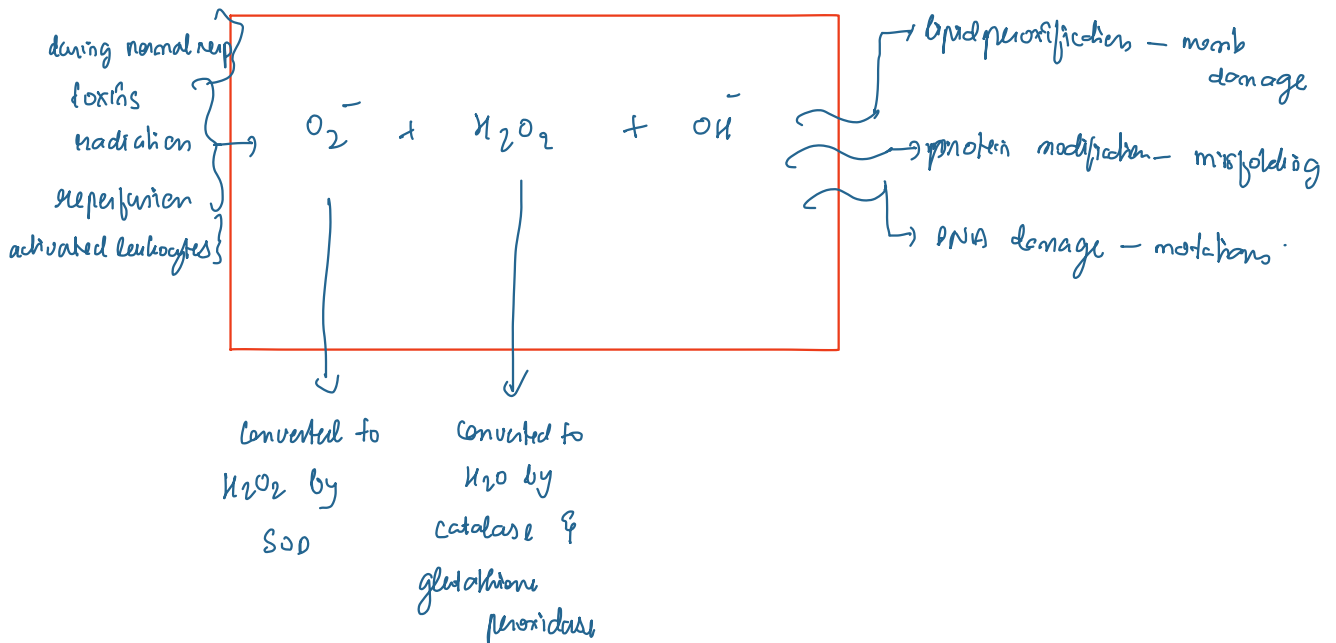 during normal resp
toxins
radiation
reperfusion
activated leukocytes
O2⁻ + H2O2 + OH⁻
lipid peroxification – memb
damage
protein modification – misfolding
DNA damage – mutations
Converted to
H2O2 by
SOD
Converted to
H2O by
catalase &
glutathione
peroxidase